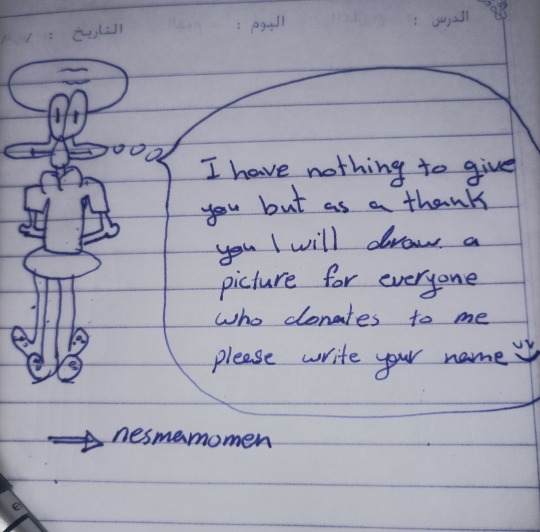 الدرس :
اليوم :
التاريخ : / /
I have nothing to give
you but as a thank
you I will draw a
picture for everyone
who donates to me
please write your name
nesmamomen